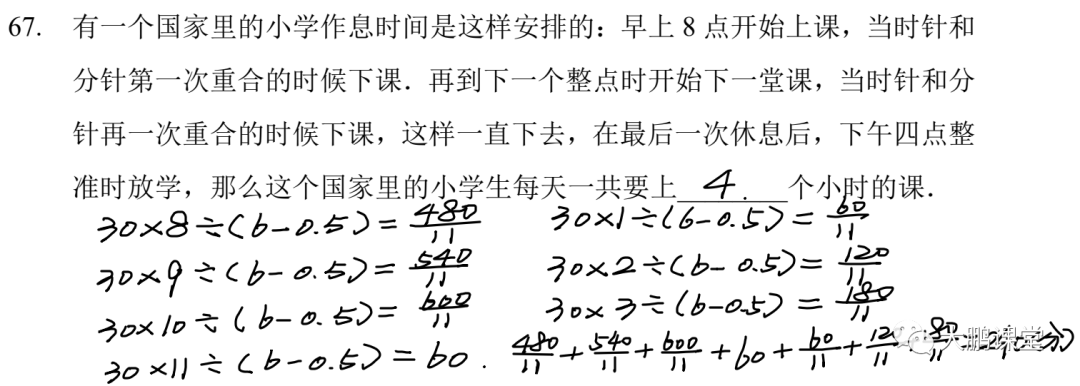 67. 有一个国家里的小学作息时间是这样安排的：早上 8 点开始上课，当时针和
分针第一次重合的时候下课．再到下一个整点时开始下一堂课，当时针和分
针再一次重合的时候下课，这样一直下去，在最后一次休息后，下午四点整
准时放学，那么这个国家里的小学生每天一共要上 4. 个小时的课．
30×8÷(6-0.5)=480/11
30×1÷(6-0.5)=60/11
30×9÷(6-0.5)=540/11
30×2÷(6-0.5)=120/11
30×10÷(6-0.5)=600/11
30×3÷(6-0.5)=180/11
30×11÷(6-0.5)=60.
480/11+540/11+600/11+60+60/11+
大鹏课堂